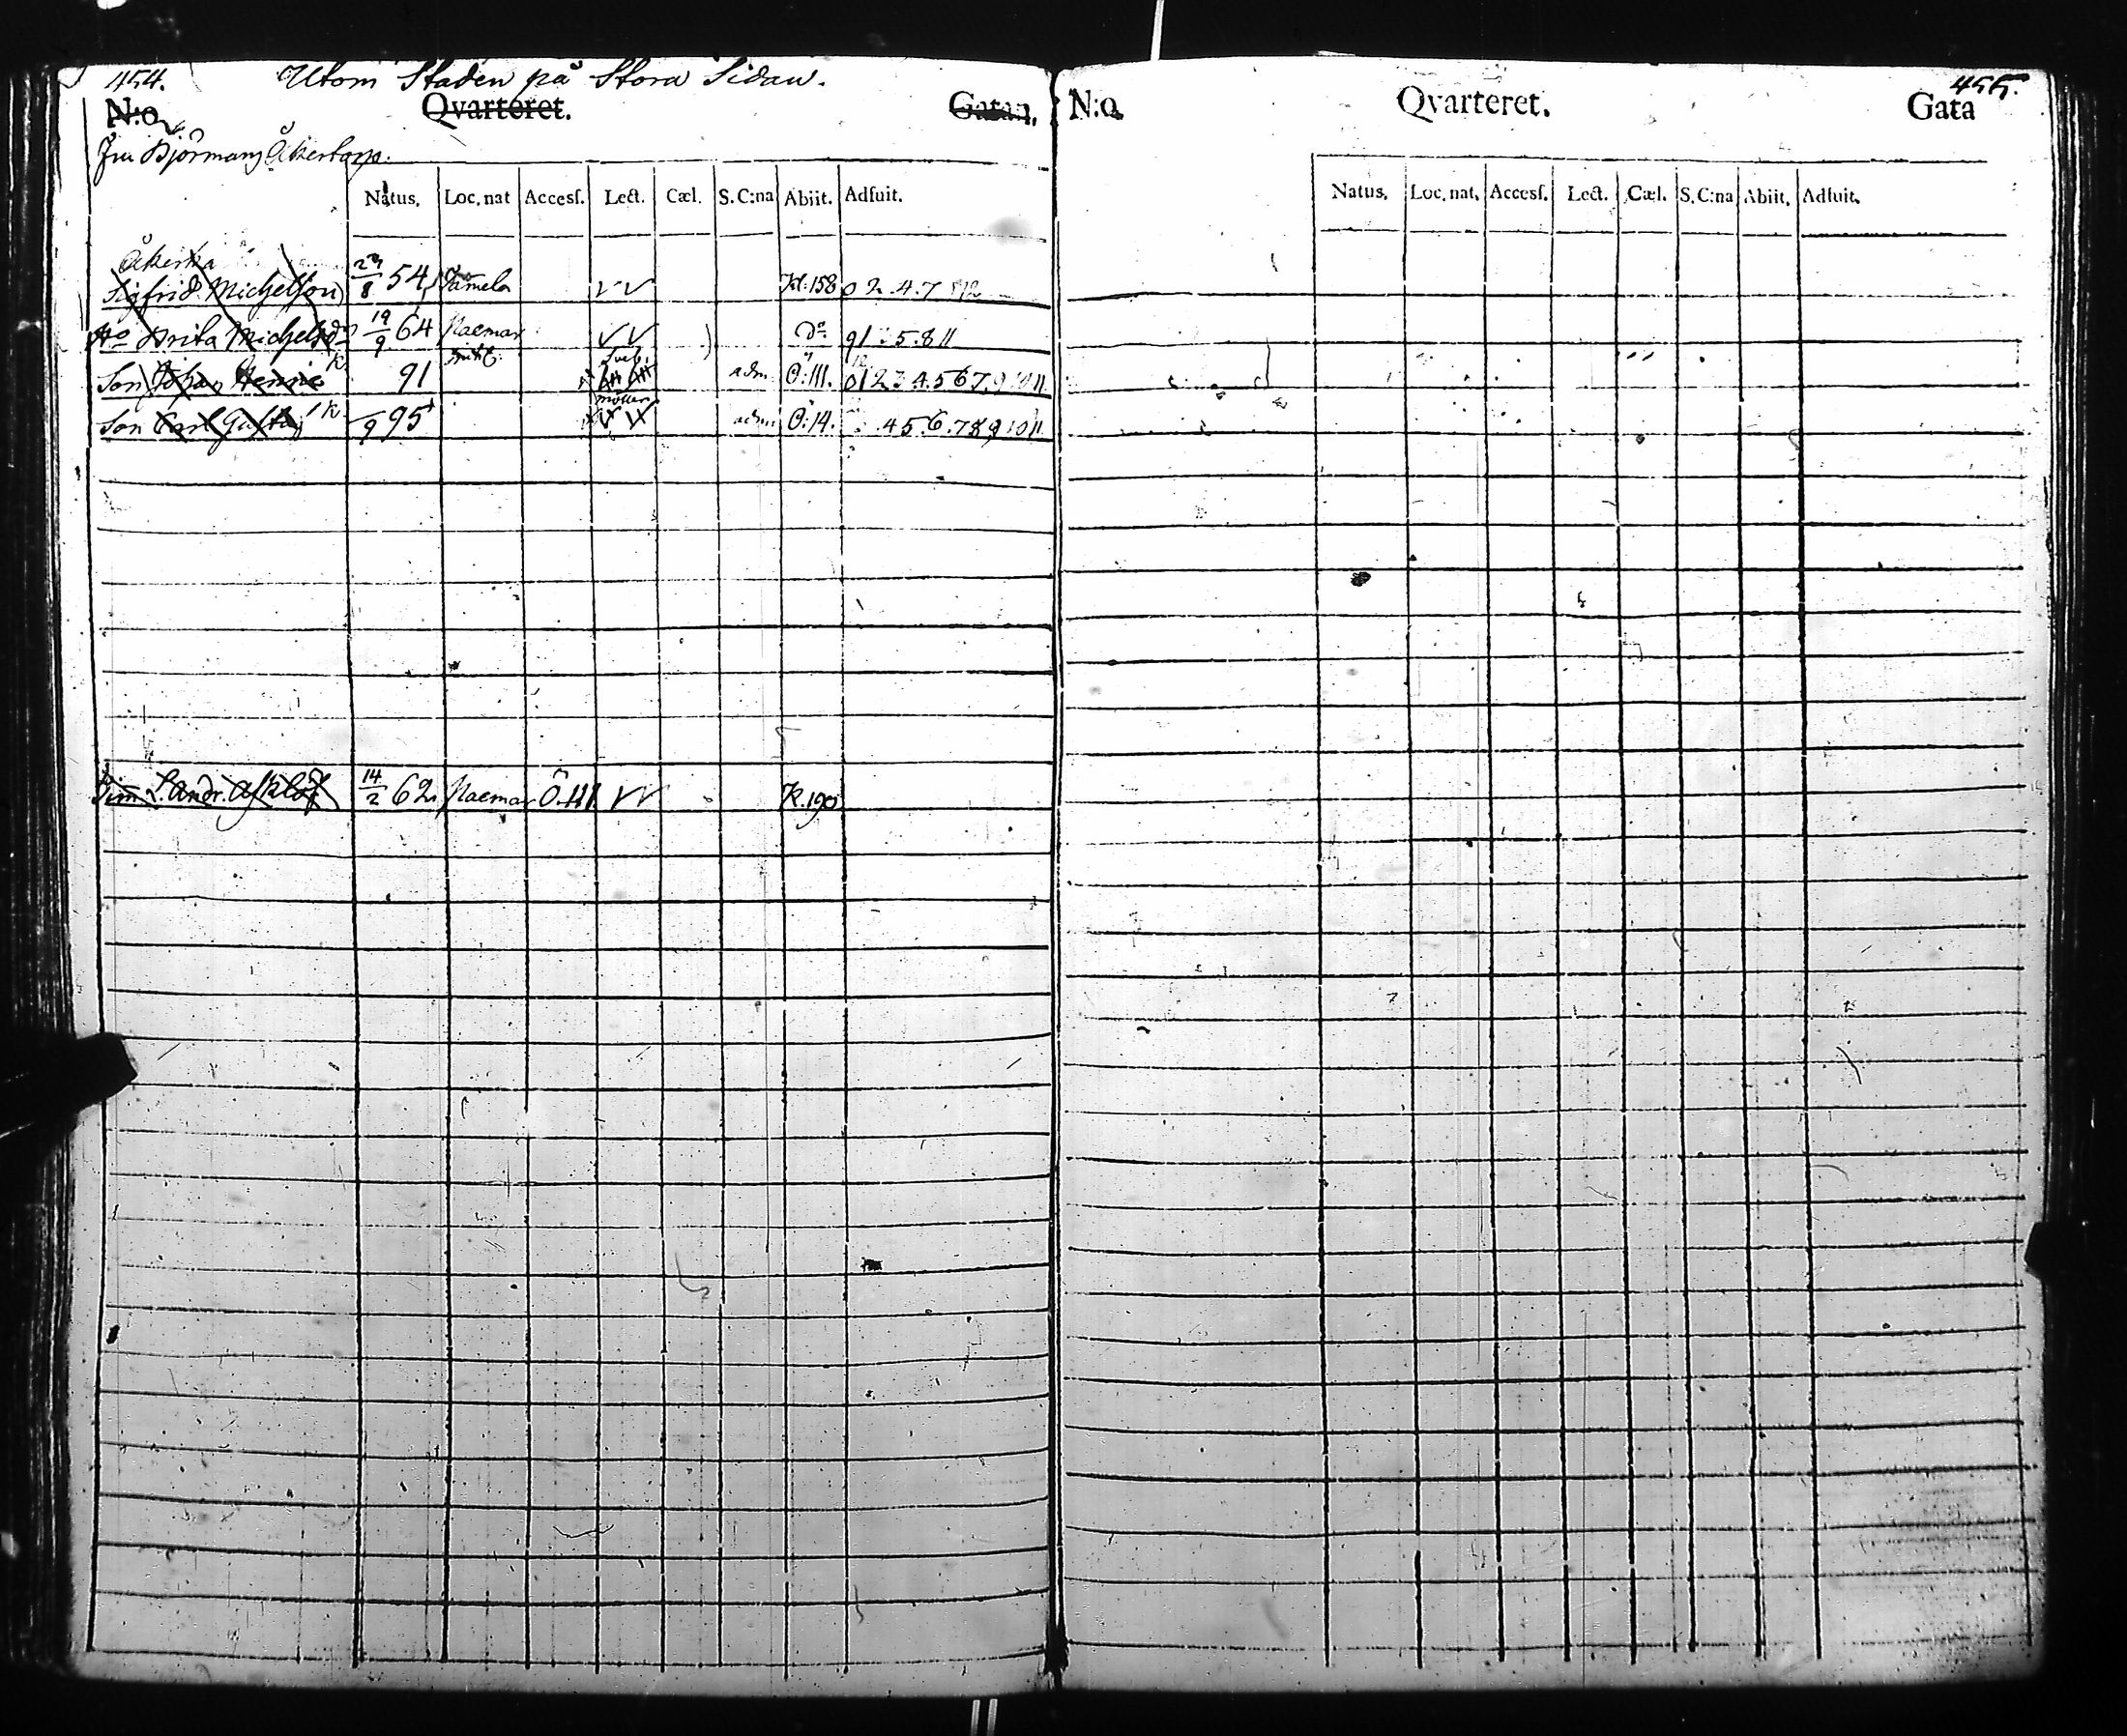 454. Utom Staden på Stora Sidan.
N:o Qvarteret. Gatan.
Fru Björmans Åkertorp.
Natus. Loc. nat Accesſ. Lect. Cæl. S. C:na Abiit. Adfuit.
Åkerka
Sigfrid Michelſon 29/8 54 Pamela Kl. 158 0 2 4.7
Ho Brita Michelsdr 19/9 64 Nacmar do 91 5.8 11
Son Johan Hennic 91 adm Ö: 111. 12 0 1 2 3 4.5 6 7. 9 10 11
Son Carl Gustaf K 9 95 adm Ö: 14. 4 5.6.7 8 9 10 11
Tim. L. Andr. Asklöf 14/2 62 Nacmar Ö.111 K. 190
455.
N:o. Qvarteret. Gata
Natus. Loc. nat. Accesſ. Lect. Cæl. S. C:na Abiit. Adfuit.